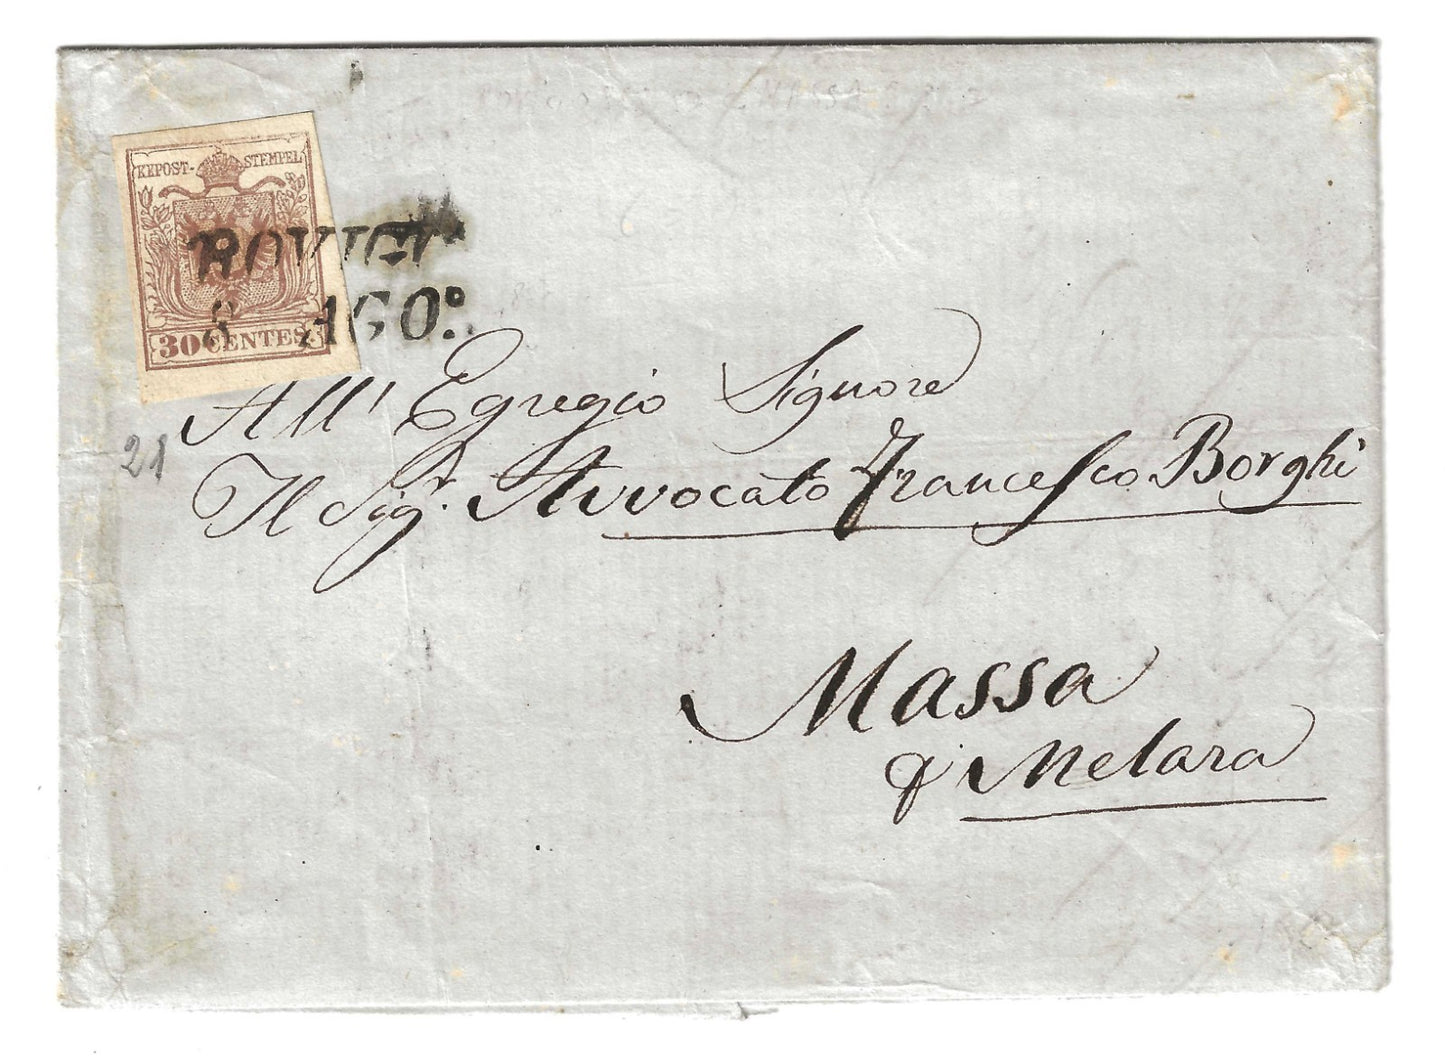 KKPOST-STEMPEL
30 CENTES
ROVIGO
8 AGO.
All' Egregio Signore
21
Il Sigr. Avvocato Francesco Borghi
Massa
di Melara